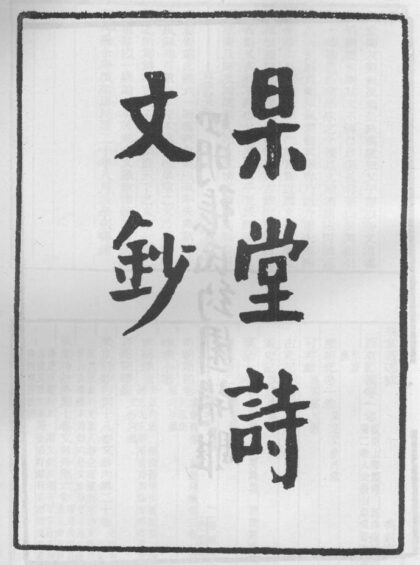 杲堂詩
文鈔